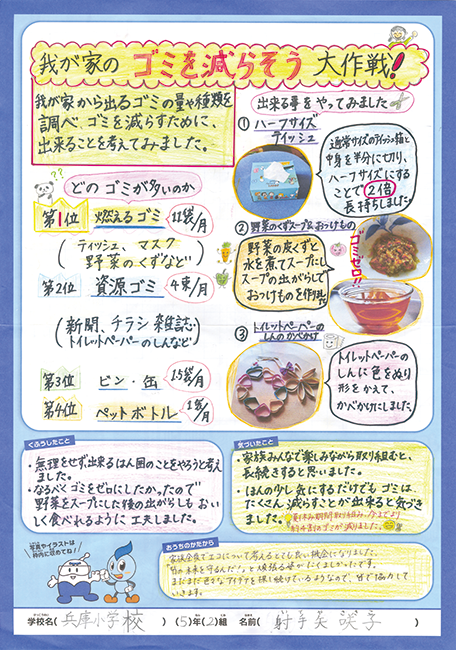 我が家の ゴミを減らそう 大作戦!
我が家から出るゴミの量や種類を
調べ、ゴミを減らすために、
出来ることを考えてみました。
どの ゴミが多いのか
第1位 燃えるゴミ 11袋/月
(ティッシュ、マスク
野菜のくずなど)
第2位 資源ゴミ 4束/月
(新聞、チラシ 雑誌
トイレットペーパーのしんなど)
第3位 ビン・缶 1.5袋/月
第4位 ペットボトル 1袋/月
出来る事をやってみました
① ハーフサイズ
ティッシュ
通常サイズのティッシュ箱と
中身を半分に切り、
ハーフサイズにする
ことで2倍
長持ちしました。
② 野菜のくずスープ&おつけもの
野菜の皮くずと
水を煮てスープにし
スープの出がらしで
おつけものを作った
ゴミゼロ!!
③ トイレットペーパーの
しんのかべかけ
トイレットペーパーの
しんに色をぬり
形をかえて、
かべかけにしました。
くふうしたこと
・無理をせず、出来るはん囲のことをやろうと考え
ました。
・なるべくゴミをゼロにしたかったので
野菜をスープにした後の出がらしもおい
しく食べれるように工夫しました。
気づいたこと
・家族みんなで楽しみながら取り組むと、
長続きすると思いました。
・ほんの少し気にするだけでもゴミは、
たくさん減らすことが出来ると気づき
ました。
夏休み期間取り組み、今までより
約4割のゴミが減りました。
写真やイラストは
枠内に収めてね!
おうちのかたから
家族全員でエコについて考えるとても良い機会になりました。
"地の未来を守るんだ"と頑張る姿がたくましかったです。
まだまだ色々なアイデアを探し続けているようなので、皆で協力して
いきます。
学校名(兵庫小学校) (5)年(2)組 名前(射手矢 咲子)